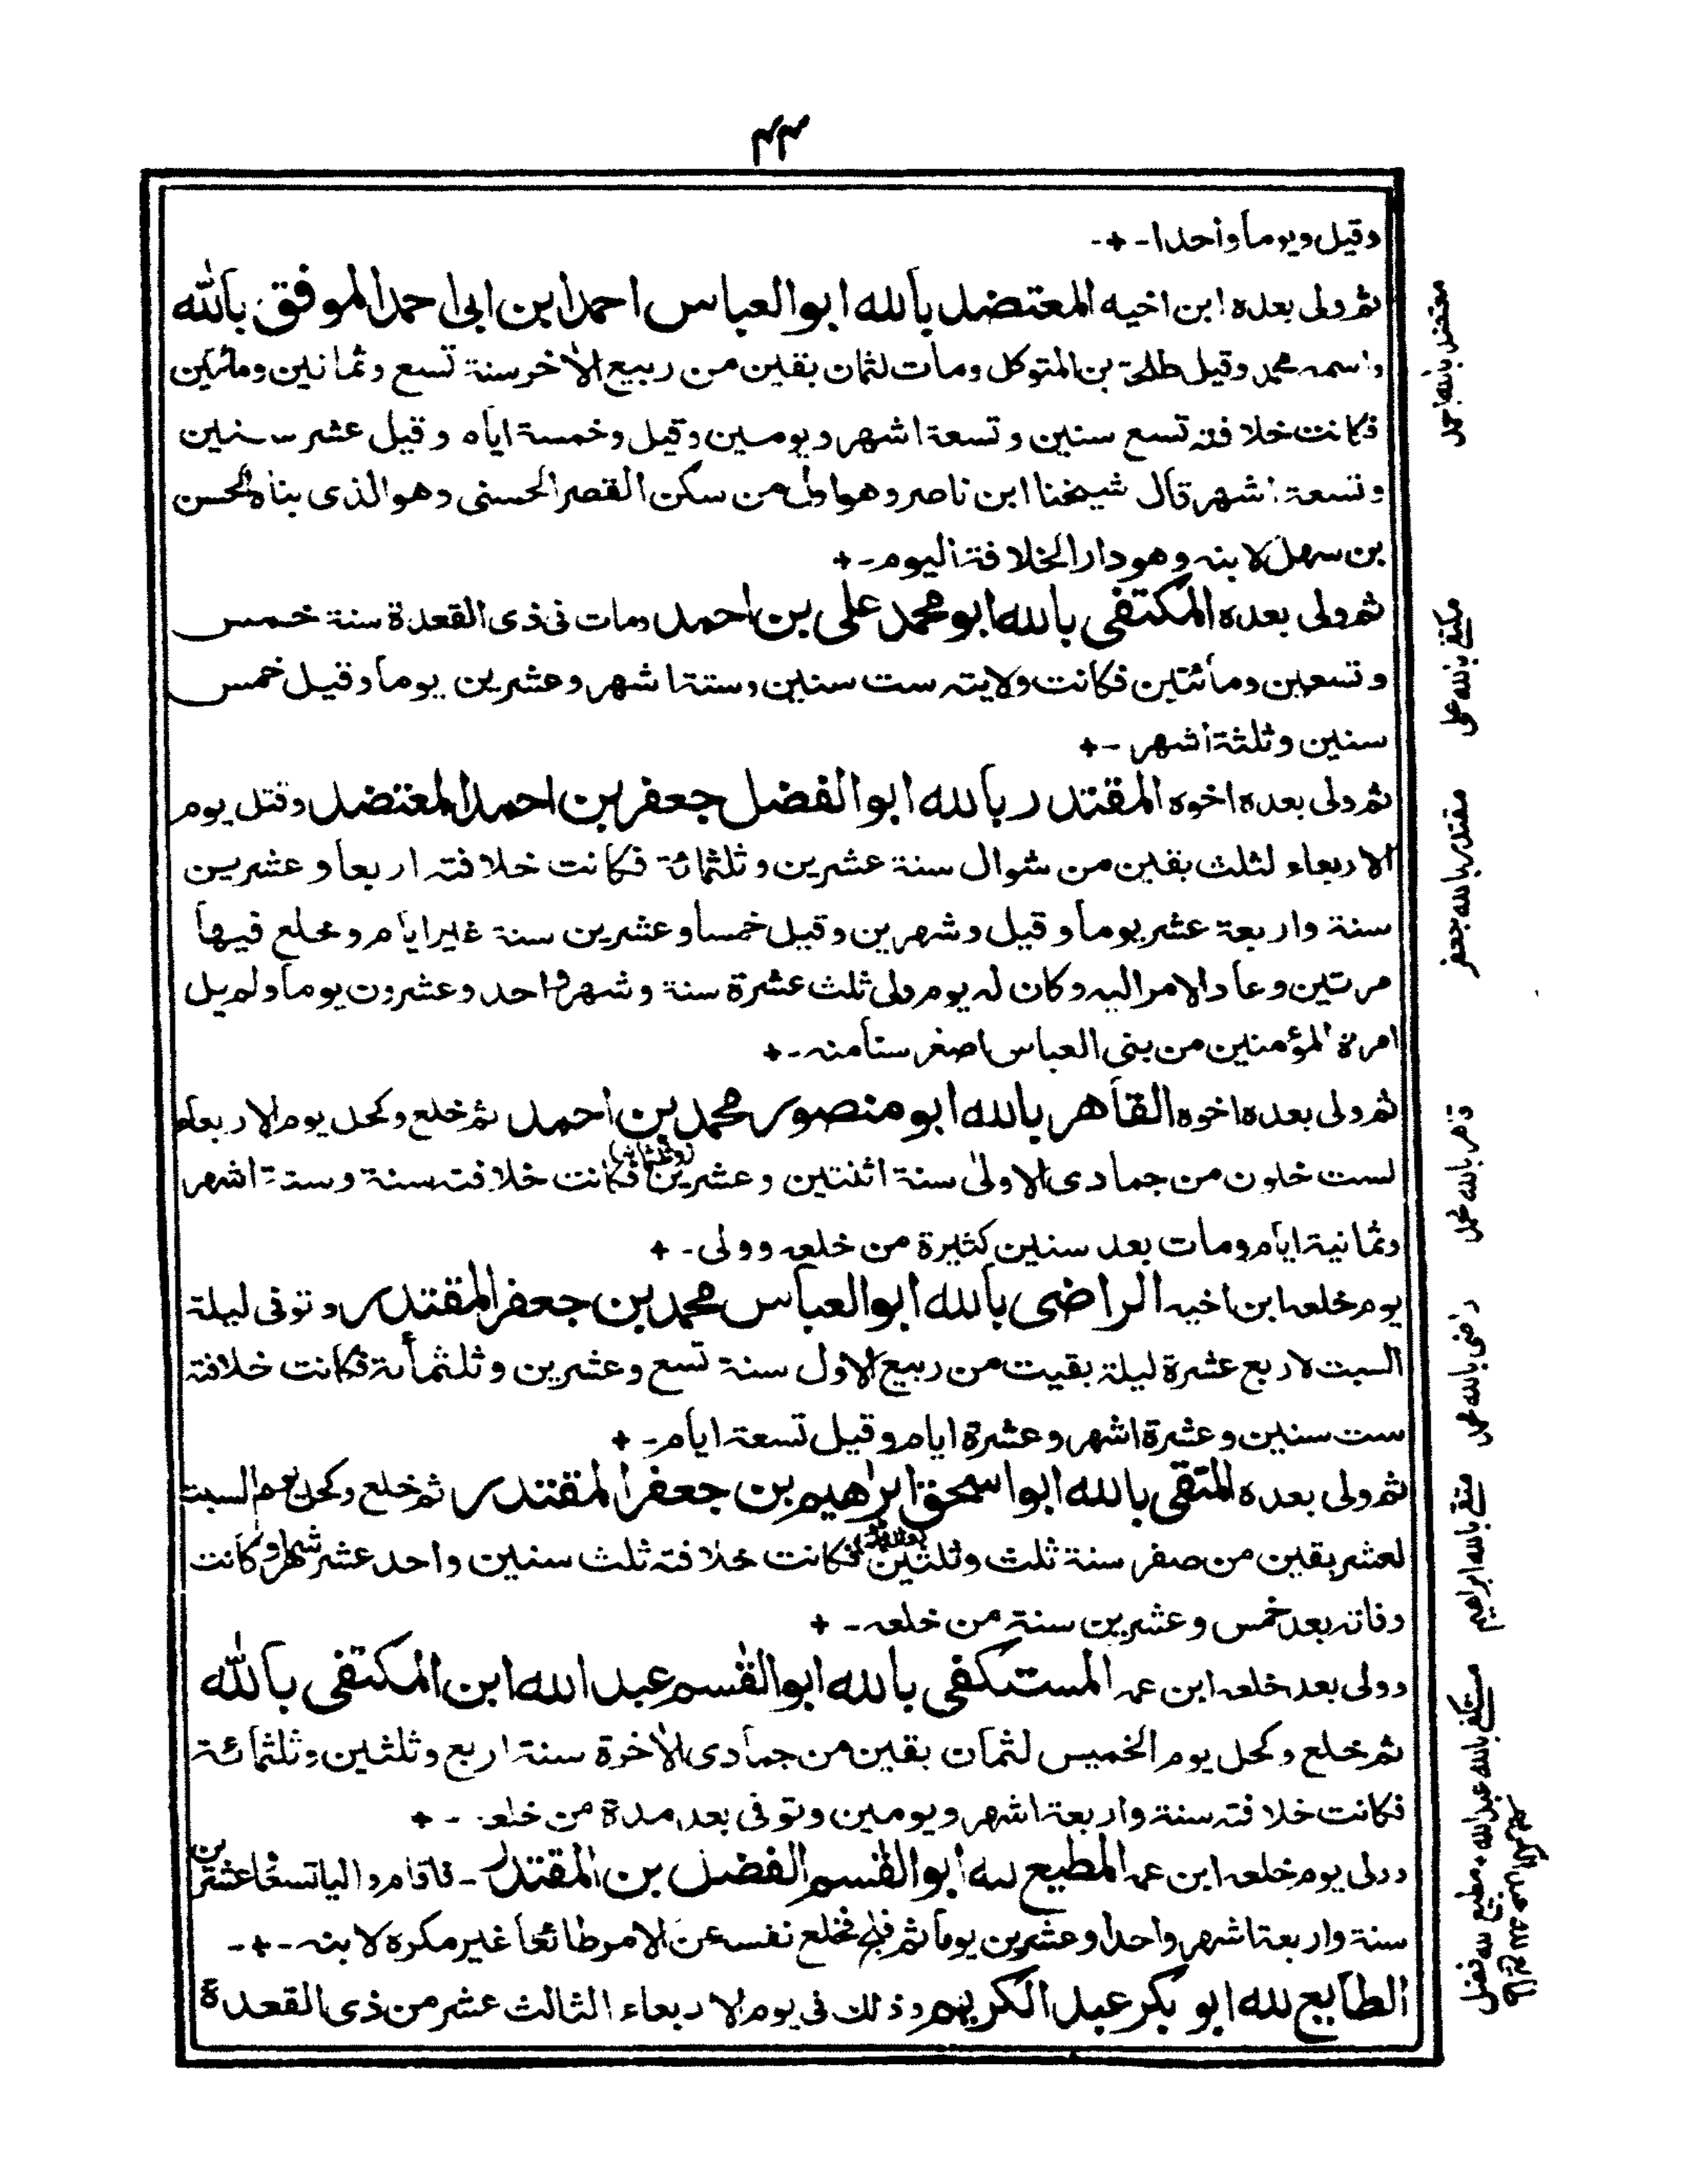 ۴۴
وقيل ويوما واحدا ـ + ـ
ثم ولى بعده ابن اخيه المعتضد بالله ابو العباس احمد ابن ابى احمد الموفق بالله
واسمه محمد وقيل طلحة بن المتوكل ومات لثمان بقين من ربيع الاٰخر سنة تسع وثمانين ومائتين
فكانت خلافته تسع سنين وتسعة اشهر ويومين وقيل وخمسة ايام وقيل عشر سنين
وتسعة اشهر قال شيخنا ابن ناصر وهو اول من سكن القصر الحسنى وهو الذى بناه الحسن
بن سهل لابنه وهو دار الخلافة اليوم ـ +
ثم ولى بعده المكتفى بالله ابو محمد على بن احمد ومات فى ذى القعدة سنة خمس
وتسعين ومائتين فكانت ولايته ست سنين وستة اشهر وعشرين يوما وقيل خمس
سنين وثلثة اشهر ـ +
ثم ولى بعده اخوه المقتدر بالله ابو الفضل جعفر بن احمد المعتضد وقتل يوم
الاربعاء لثلث بقين من شوال سنة عشرين وثلثمائة فكانت خلافته اربعا وعشرين
سنة واربعة عشر يوما وقيل وشهرين وقيل خمسا وعشرين سنة غير ايام وخلع فيها
مرتين وعاد الامر اليه وكان له يوم ولى ثلث عشرة سنة وشهر واحد وعشرون يوما ولم يل
امرة المؤمنين من بنى العباس اصغر سنا منه ـ +
ثم ولى بعده اخوه القاهر بالله ابو منصور محمد بن احمد ثم خلع وكحل يوم الاربعاء
لست خلون من جمادى الاولىٰ سنة اثنتين وعشرين وثلثمائة فكانت خلافته سنة وستة اشهر
وثمانية ايام ومات بعد سنين كثيرة من خلعه وولى ـ +
يوم خلعه ابن اخيه الراضى بالله ابو العباس محمد بن جعفر المقتدر وتوفى ليلة
السبت لاربع عشرة ليلة بقيت من ربيع الاول سنة تسع وعشرين وثلثمأئة فكانت خلافته
ست سنين وعشرة اشهر وعشرة ايام وقيل تسعة ايام ـ +
ثم ولى بعده المتقى بالله ابو اسحٰق ابرٰهيم بن جعفر المقتدر ثم خلع وكحل يوم السبت
لعشر بقين من صفر سنة ثلث وثلثين وثلثمائة فكانت خلافته ثلث سنين واحد عشر شهرا وكانت
وفاته بعد خمس وعشرين سنة من خلعه ـ +
وولى بعد خلعه ابن عمه المستكفى بالله ابو القٰسم عبد الله ابن المكتفى بالله
ثم خلع وكحل يوم الخميس لثمان بقين من جمادى الاٰخرة سنة اربع وثلثين وثلثمائة
فكانت خلافته سنة واربعة اشهر ويومين وتوفى بعد مدة من خلعه ـ +
وولى يوم خلعه ابن عمه المطيع لله ابو القٰسم الفضل بن المقتدر ـ فاقام واليا تسعا وعشرين
سنة واربعة اشهر واحدا وعشرين يوما ثم فلج فخلع نفسه عن الامر طائعا غير مكره لابنه ـ + ـ
الطايع لله ابو بكر عبد الكريم وذلك فى يوم الاربعاء الثالث عشر من ذى القعدة
معتضد بالله احمد
مكتفے بالله على
مقتدر بالله جعفر
قاهر بالله محمد
راضى بالله محمد
متقے بالله ابراهيم
مستكفے بالله عبد الله
مطيع لله فضل
الطايع لله عبد الكريم